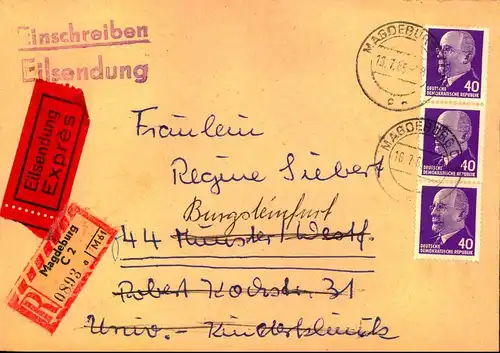 Einschreiben
Eilsendung
MAGDEBURG
40
DEUTSCHE
DEMOKRATISCHE REPUBLIK
MAGDEBURG
40
DEUTSCHE
DEMOKRATISCHE REPUBLIK
40
DEUTSCHE
DEMOKRATISCHE REPUBLIK
Eilsendung
Exprès
Magdeburg
C 2
R
0898 a
M61
Fräulein
Regine Siebert
Burgsteinfurt
44 Münster Westf.
Robert Kochstr. 31
Univ. - Kinderklinik